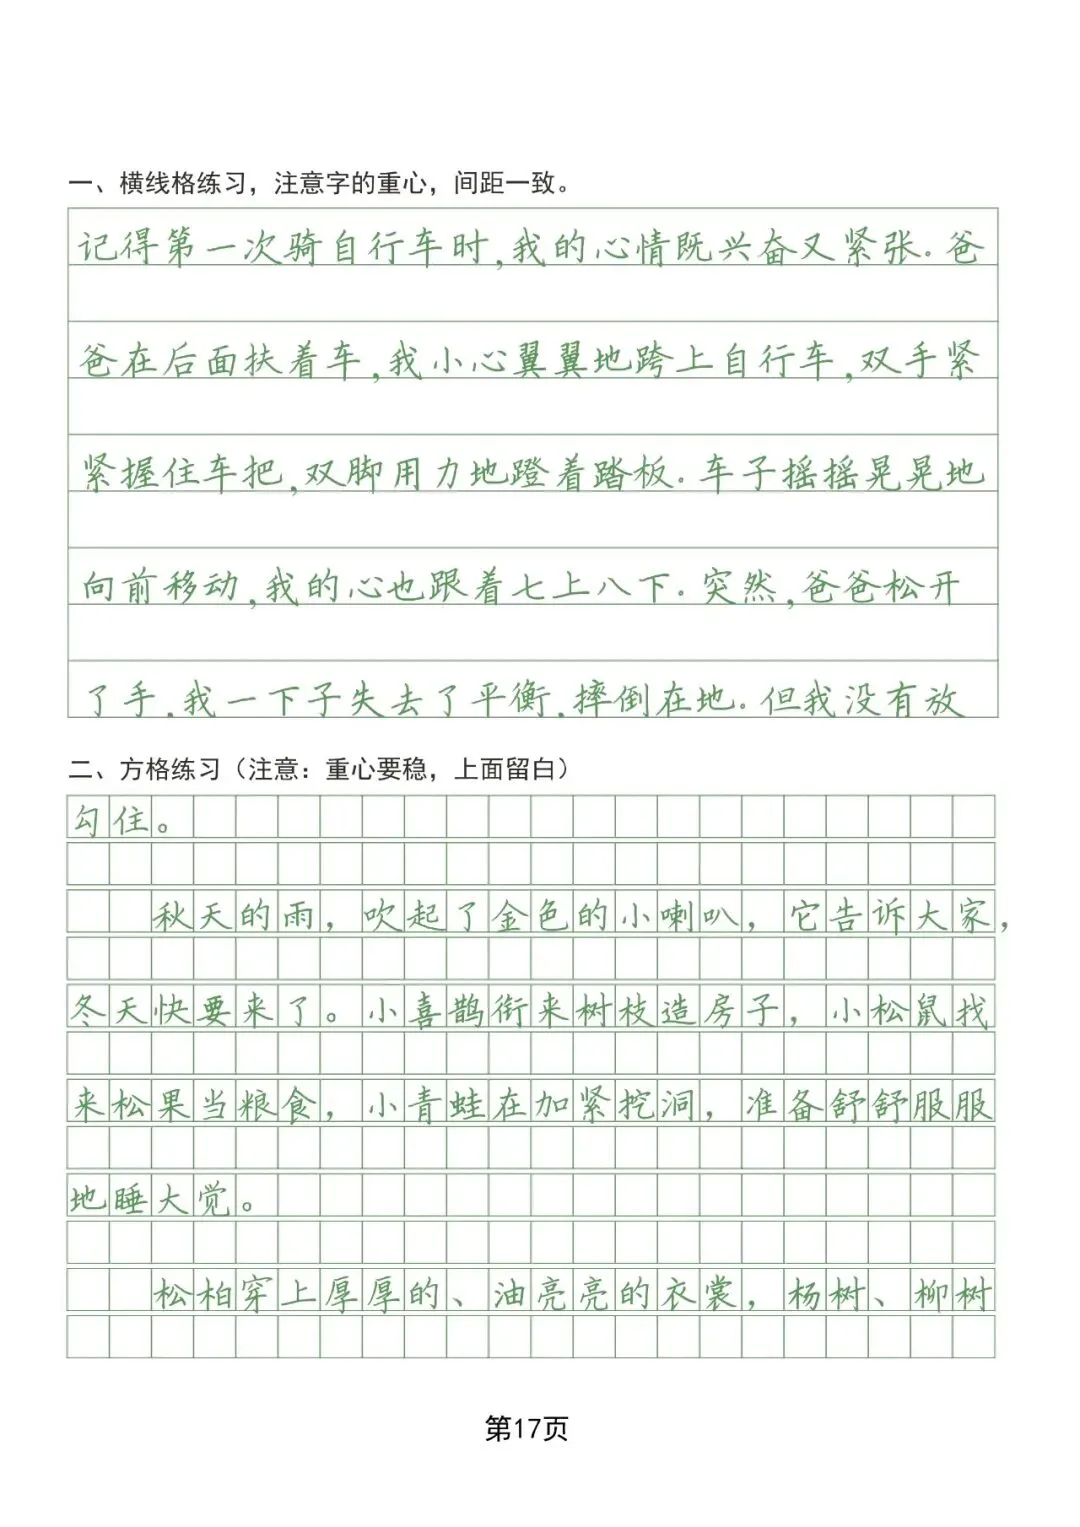 一、横线格练习，注意字的重心，间距一致。
记得第一次骑自行车时,我的心情既兴奋又紧张.爸
爸在后面扶着车,我小心翼翼地跨上自行车,双手紧
紧握住车把,双脚用力地蹬着踏板.车子摇摇晃晃地
向前移动,我的心也跟着七上八下.突然,爸爸松开
了手,我一下子失去了平衡,摔倒在地.但我没有放
二、方格练习（注意：重心要稳，上面留白）
勾住。
秋天的雨，吹起了金色的小喇叭，它告诉大家，
冬天快要来了。小喜鹊衔来树枝造房子，小松鼠找
来松果当粮食，小青蛙在加紧挖洞，准备舒舒服服
地睡大觉。
松柏穿上厚厚的、油亮亮的衣裳，杨树、柳树
第17页